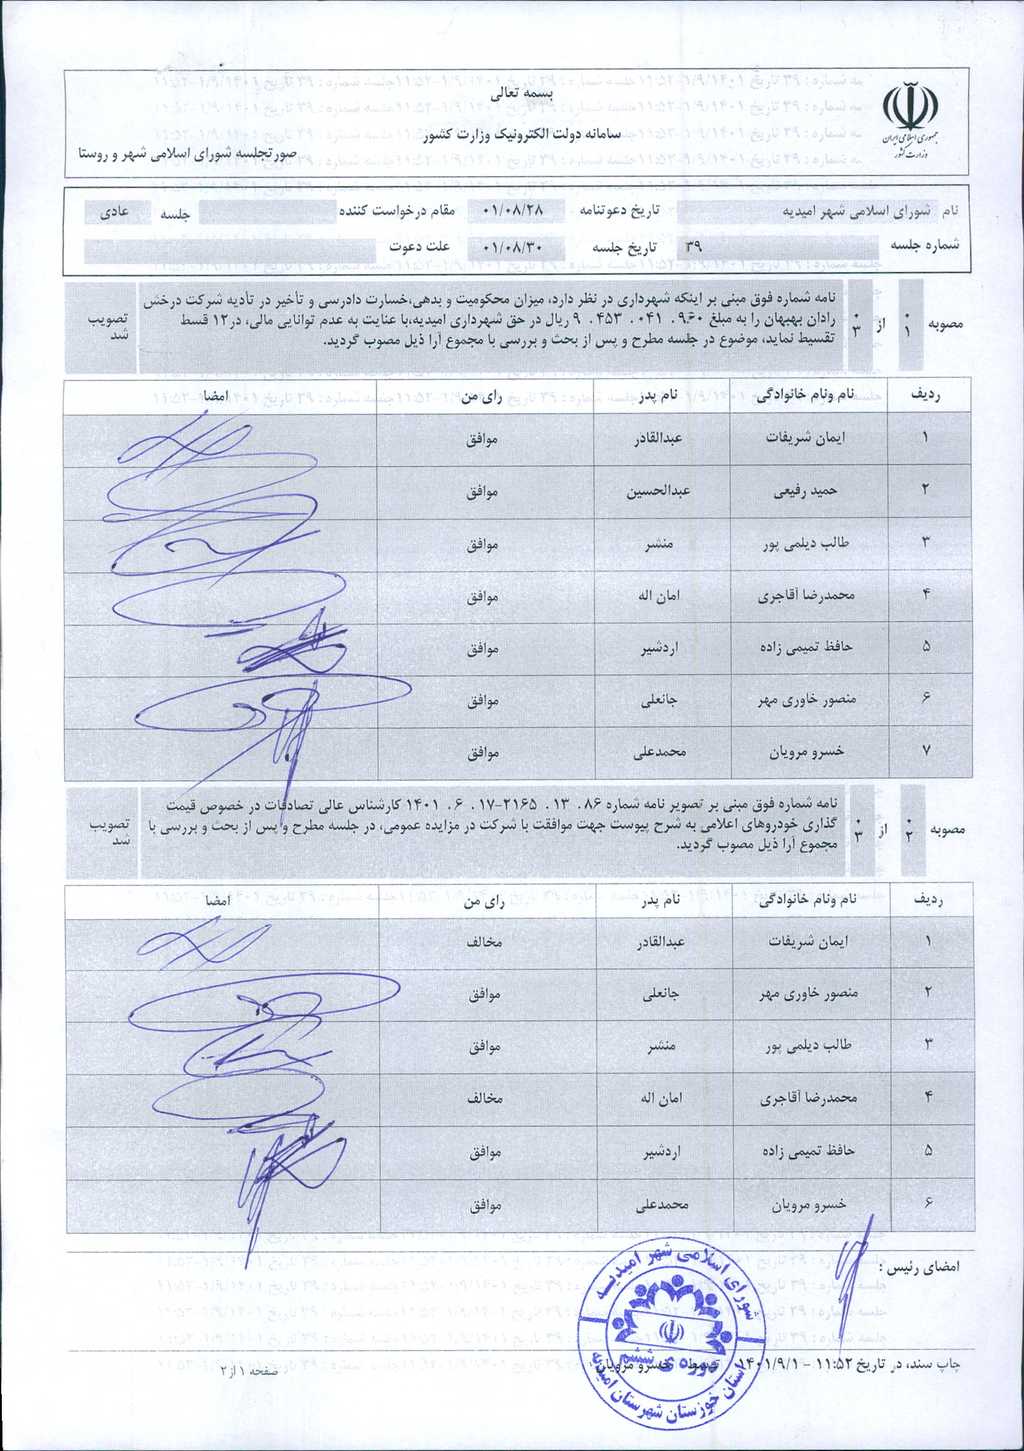 بسمه تعالی
سامانه دولت الکترونیک وزارت کشور
صورتجلسه شورای اسلامی شهر و روستا
جمهوری اسلامی ایران
وزارت کشور
نام شورای اسلامی شهر امیدیه تاریخ دعوتنامه ۰۱/۰۸/۲۸ مقام درخواست کننده جلسه عادی
شماره جلسه ۳۹ تاریخ جلسه ۰۱/۰۸/۳۰ علت دعوت
مصوبه ۰۱ از ۰۳
نامه شماره فوق مبنی بر اینکه شهرداری در نظر دارد، میزان محکومیت و بدهی،خسارت دادرسی و تأخیر در تأدیه شرکت درخش
رادان بهبهان را به مبلغ ۹۶۰. ۰۴۱. ۴۵۳. ۹ ریال در حق شهرداری امیدیه،با عنایت به عدم توانایی مالی، در۱۲ قسط
تقسیط نماید، موضوع در جلسه مطرح و پس از بحث و بررسی با مجموع آرا ذیل مصوب گردید.
تصویب شد
ردیف نام ونام خانوادگی نام پدر رای من امضا
۱ ایمان شریفات عبدالقادر موافق
۲ حمید رفیعی عبدالحسین موافق
۳ طالب دیلمی پور منشر موافق
۴ محمدرضا آقاجری امان اله موافق
۵ حافظ تمیمی زاده اردشیر موافق
۶ منصور خاوری مهر جانعلی موافق
۷ خسرو مرویان محمدعلی موافق
مصوبه ۰۲ از ۰۳
نامه شماره فوق مبنی بر تصویر نامه شماره ۸۶. ۱۳. ۲۱۶۵-۱۷. ۶. ۱۴۰۱ کارشناس عالی تصادفات در خصوص قیمت
گذاری خودروهای اعلامی به شرح پیوست جهت موافقت با شرکت در مزایده عمومی، در جلسه مطرح و پس از بحث و بررسی با
مجموع آرا ذیل مصوب گردید.
تصویب شد
ردیف نام ونام خانوادگی نام پدر رای من امضا
۱ ایمان شریفات عبدالقادر مخالف
۲ منصور خاوری مهر جانعلی موافق
۳ طالب دیلمی پور منشر موافق
۴ محمدرضا آقاجری امان اله مخالف
۵ حافظ تمیمی زاده اردشیر موافق
۶ خسرو مرویان محمدعلی موافق
امضای رئیس :
شورای اسلامی شهر امیدیه
دوره ی ششم
استان خوزستان شهرستان امیدیه
چاپ سند، در تاریخ ۱۱:۵۲ - ۱۴۰۱/۹/۱ توسط خسرو مرویان
صفحه ۱ از ۲